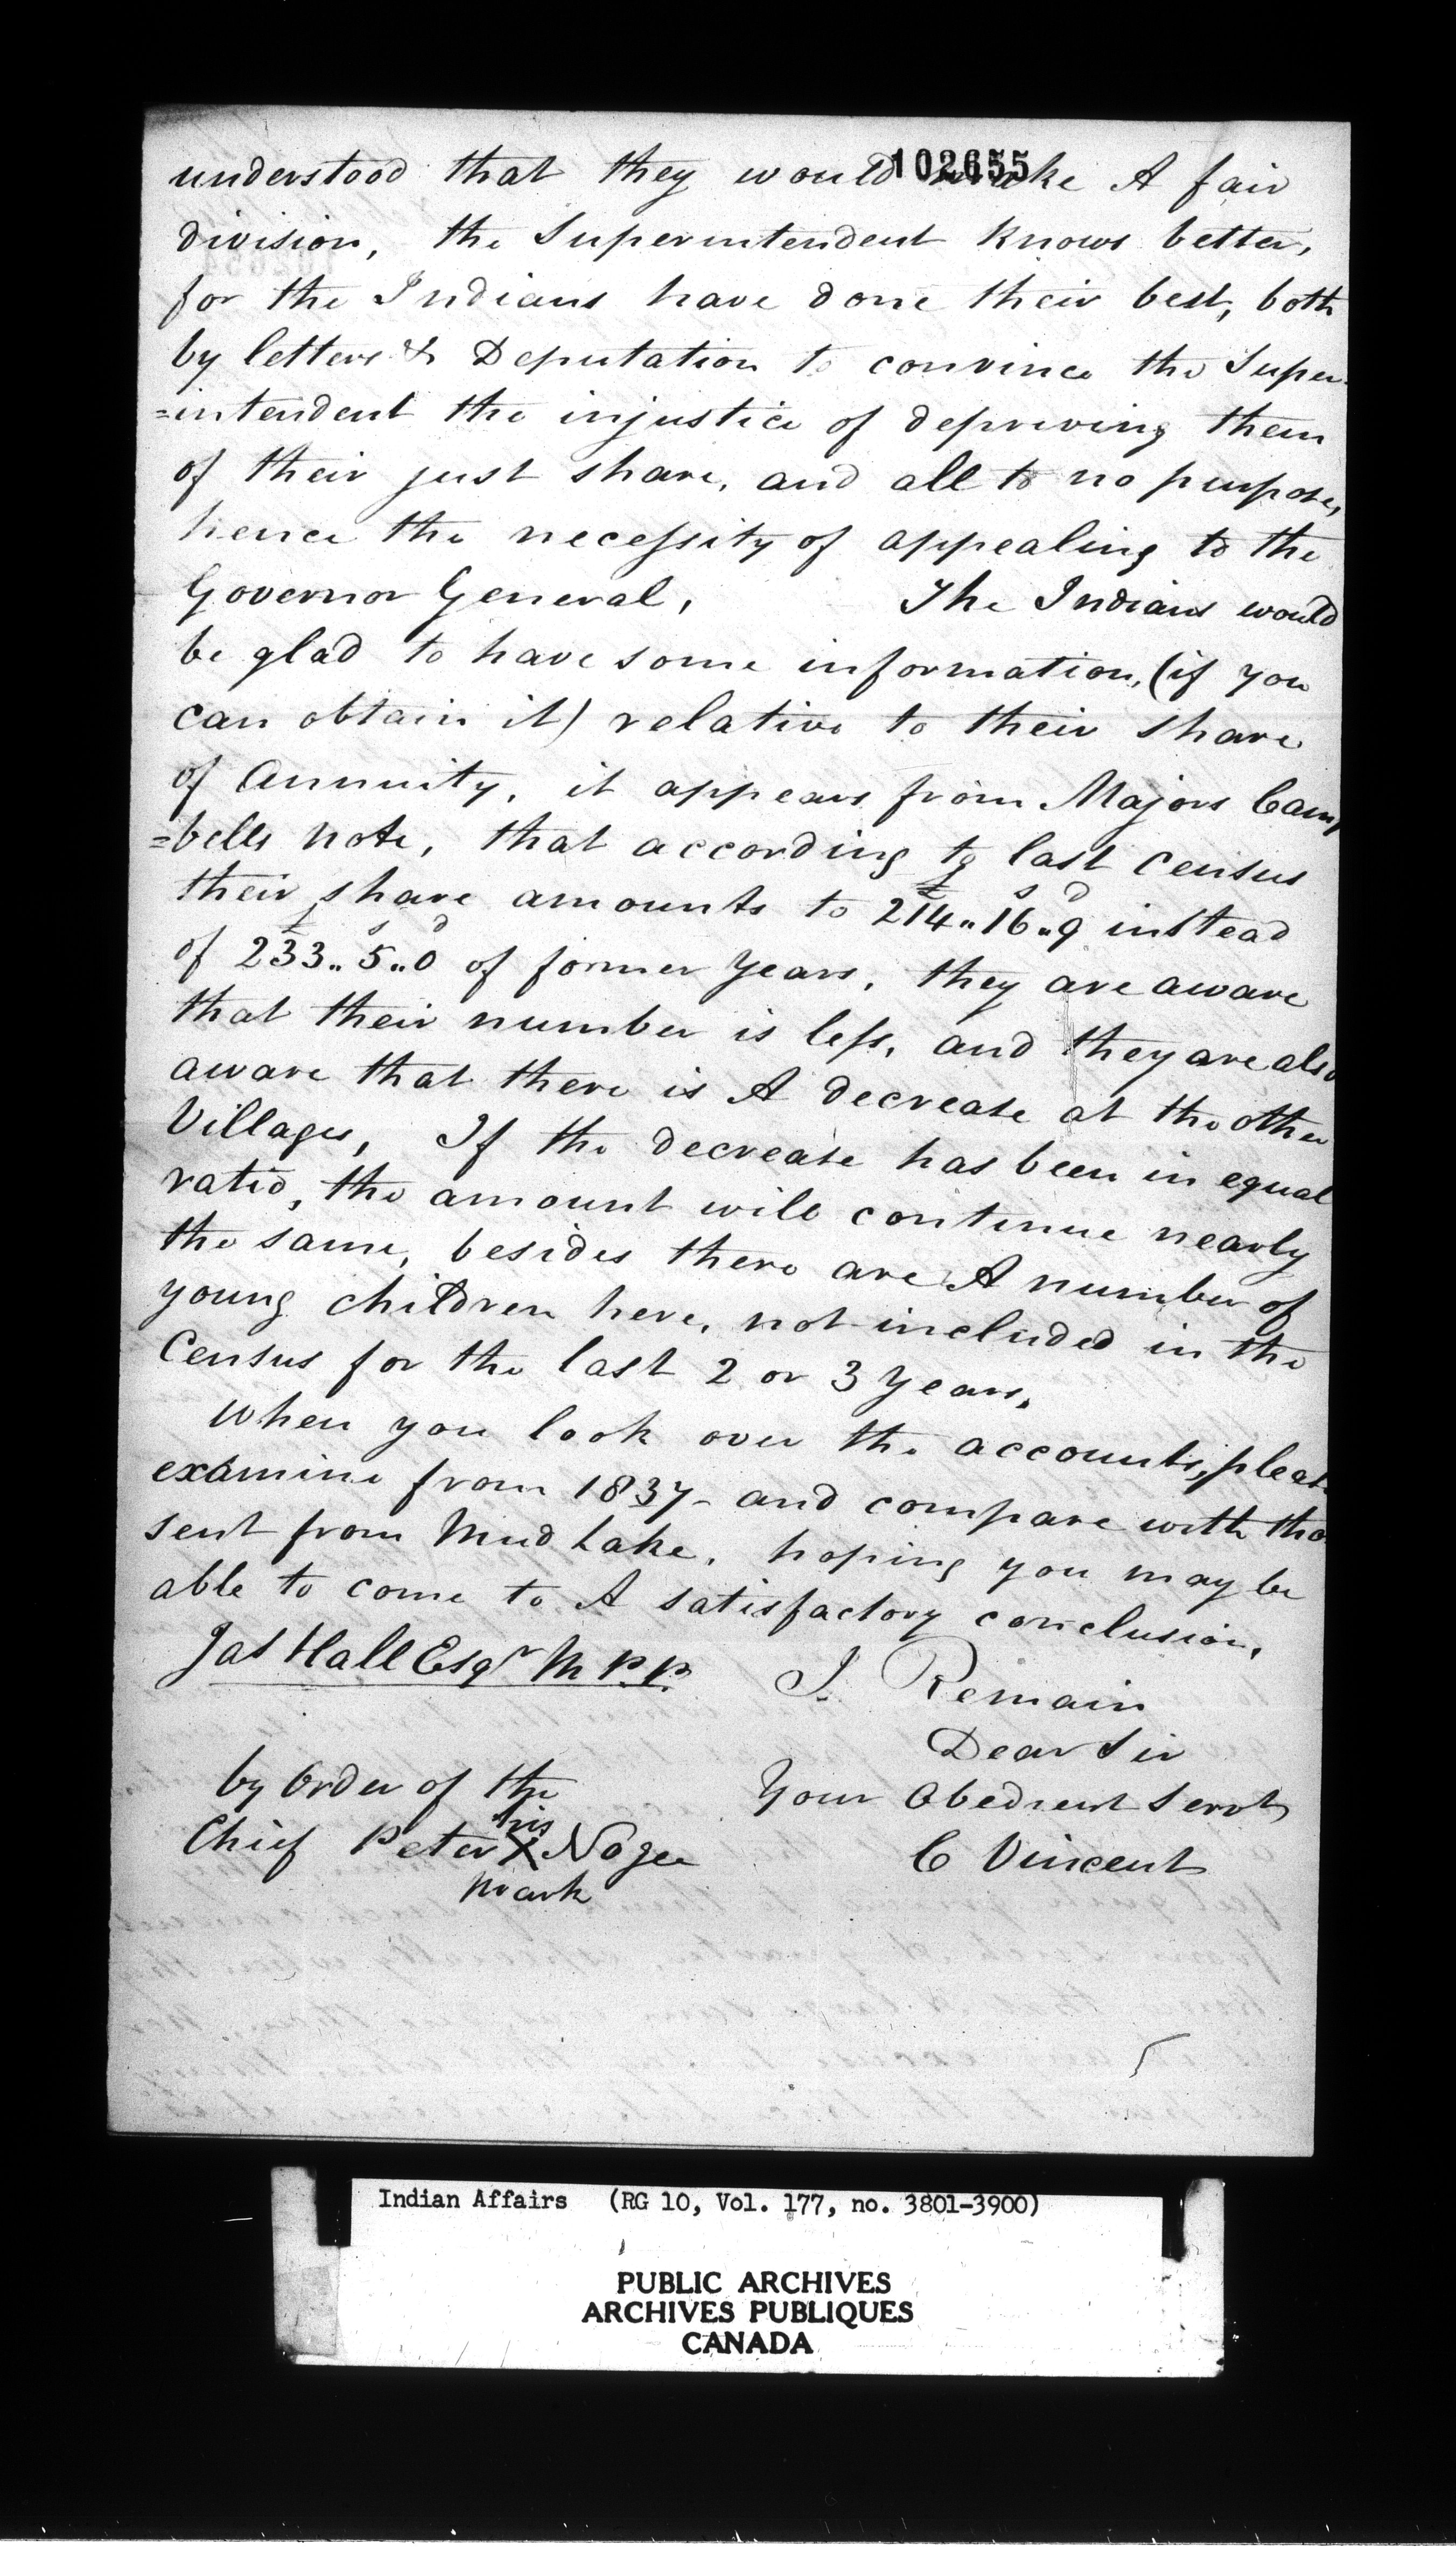 102655
understood that they would make A fair
division, the Superintendent knows better,
for the Indians have done their best, both
by letters & Deputation to convince the Super-
=intendent the injustice of depriving them
of their just share, and all to no purpose,
hence the necessity of appealing to the
Governor General, The Indians would
be glad to have some information, (if you
can obtain it) relative to their share
of Annuity, it appears from Majors Camp
=bells note, that according to last census
their share amounts to £214..16s..9d instead
of £233..5s..0d of former years, they are aware
that their number is less, and they are also
aware that there is A decrease at the other
Villages, If the decrease has been in equal
ratio, the amount will continue nearly
the same, besides there are A number of
young children here, not included in the
Census for the last 2 or 3 years,
When you look over the accounts, please
examine from 1837 - and compare with tho
sent from Mud Lake, hoping you may be
able to come to A satisfactory conclusion,
Jas Hall Esqr M P.P. I Remain
Dear Sir
by Order of the Your Obedient Servt
his
Chief Peter X Nogee C Vincent
mark
Indian Affairs (RG 10, Vol. 177, no. 3801-3900)
PUBLIC ARCHIVES
ARCHIVES PUBLIQUES
CANADA